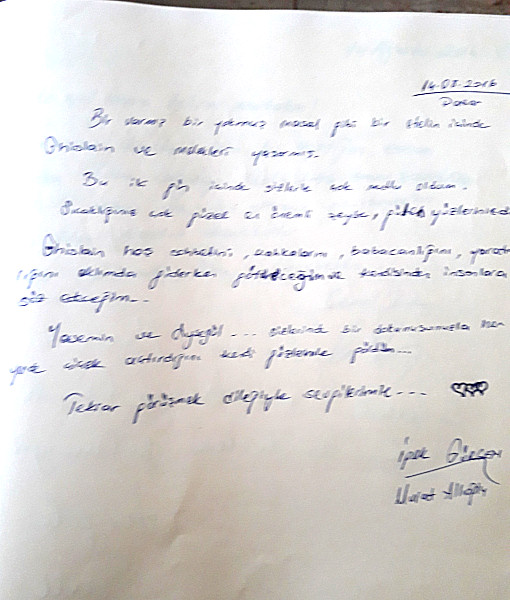 14.08.2016
Bir varmış bir yokmuş masal gibi bir otelin içinde
Ghislain ve melekleri yaşarmış.
Bu iki gün içinde sizlerle çok mutlu oldum.
Sıcaklığınız çok güzel en önemli şeyse, güler yüzlerinizdi
Ghislain hoş sohbetini, kahkalarını, babacanlığını, yaratı
cığını aklımda giderken götüreceğim ve kendisinden insanlara
söz edeceğim...
Yasemin ve Ayşegül... sizlerinde bir dokunuşunuzla her
yerde çiçek açtırdığını kendi gözlerimle gördüm...
Tekrar görüşmek dileğiyle sevgilerimle...
İpek
Murat